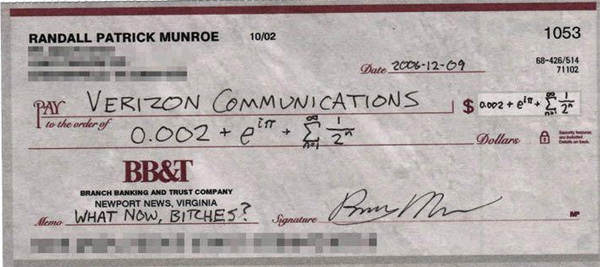 RANDALL PATRICK MUNROE 10/02 1053
68-426/514
71102
Date 2006-12-09
PAY to the order of VERIZON COMMUNICATIONS $ 0.002 + e^{iπ} + ∑_{n=1}^{∞} 1/2^n
0.002 + e^{iπ} + ∑_{n=1}^{∞} 1/2^n Dollars
Security features are included. Details on back.
BB&T
BRANCH BANKING AND TRUST COMPANY
NEWPORT NEWS, VIRGINIA
Memo WHAT NOW, BITCHES? Signature
MP